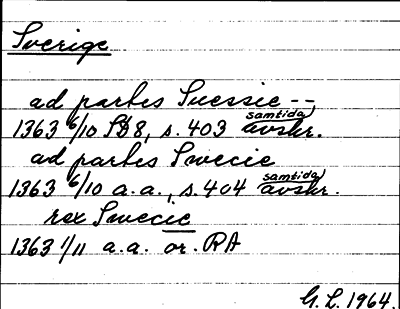 Sverige
ad partes Suessie --
1363 6/10 SD8, s. 403 samtida avskr.
ad partes Swecie
1363 6/10 a.a., s. 404 samtida avskr.
rex Swecie
1363 1/11 a.a. or. RA
G. L. 1964.